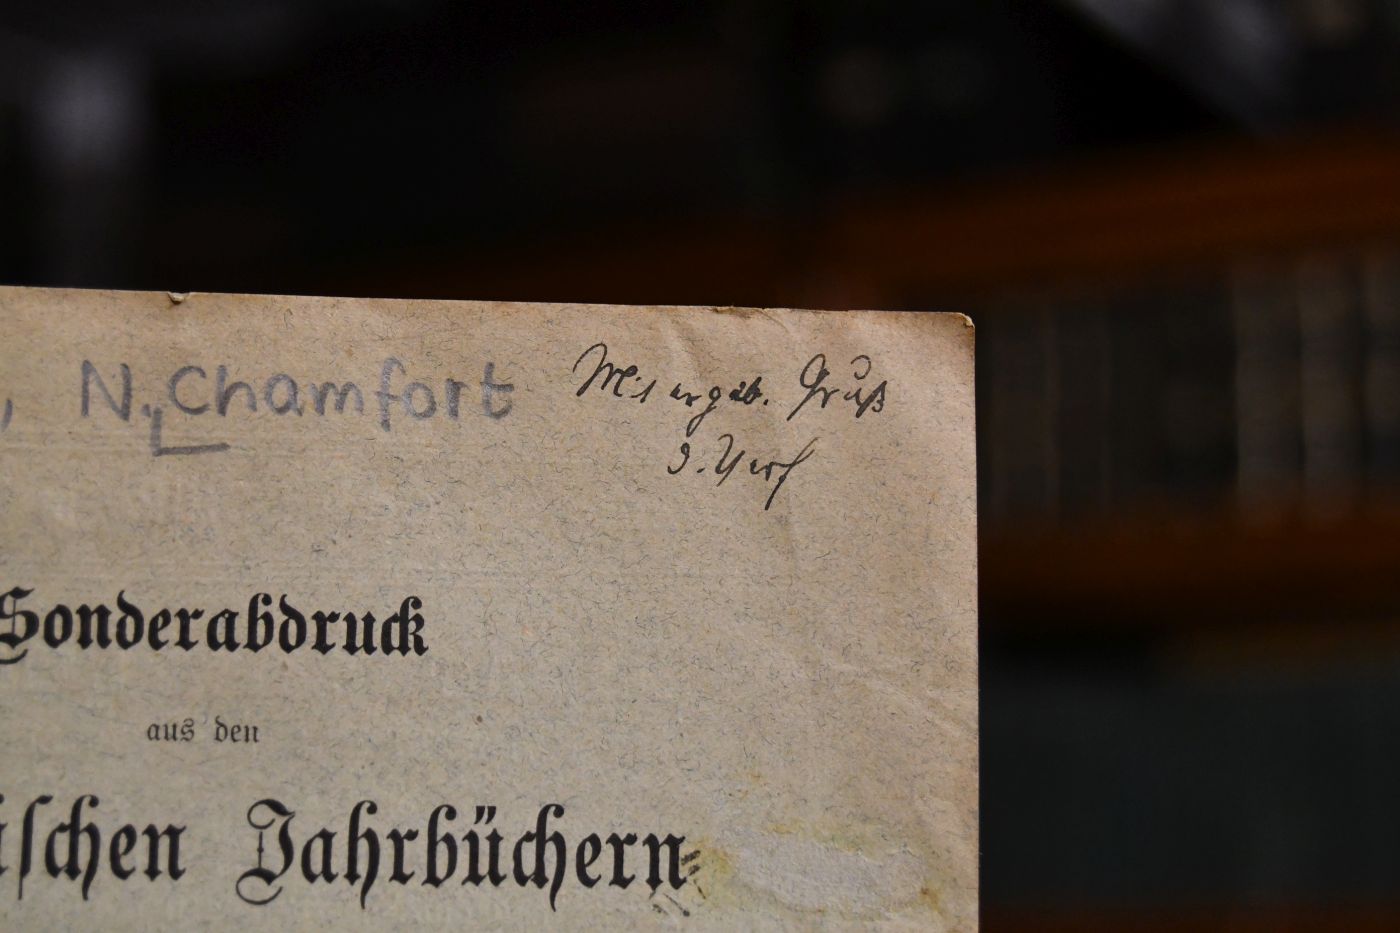 , N. Chamfort
Mit ergeb. Gruß
d. Verf
Sonderabdruck
aus den
ischen Jahrbüchern